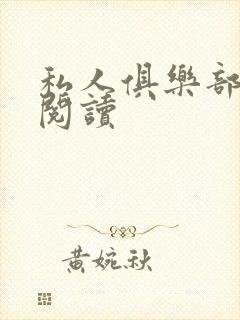 私人俱樂部
閱讀
黃婉秋